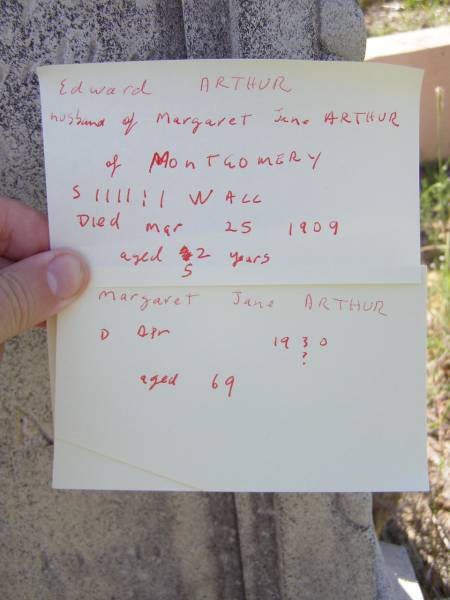 Edward ARTHUR
husband of Margaret Jane ARTHUR
of MONTGOMERY
S | | | | ! | WALL
Died mar 25 1909
aged 2 years
5
Margaret Jane ARTHUR
D Apr 1930
?
aged 69